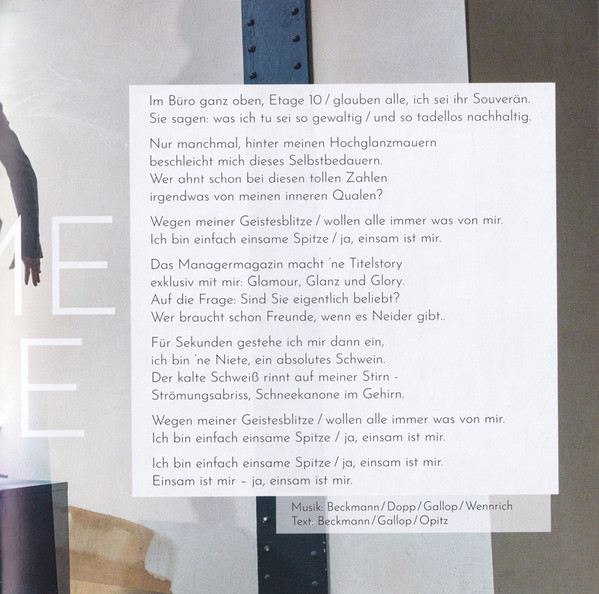 ME
E
Im Büro ganz oben, Etage 10 / glauben alle, ich sei ihr Souverän.
Sie sagen: was ich tu sei so gewaltig / und so tadellos nachhaltig.
Nur manchmal, hinter meinen Hochglanzmauern
beschleicht mich dieses Selbstbedauern.
Wer ahnt schon bei diesen tollen Zahlen
irgendwas von meinen inneren Qualen?
Wegen meiner Geistesblitze / wollen alle immer was von mir.
Ich bin einfach einsame Spitze / ja, einsam ist mir.
Das Managermagazin macht ’ne Titelstory
exklusiv mit mir: Glamour, Glanz und Glory.
Auf die Frage: Sind Sie eigentlich beliebt?
Wer braucht schon Freunde, wenn es Neider gibt..
Für Sekunden gestehe ich mir dann ein,
ich bin ’ne Niete, ein absolutes Schwein.
Der kalte Schweiß rinnt auf meiner Stirn -
Strömungsabriss, Schneekanone im Gehirn.
Wegen meiner Geistesblitze / wollen alle immer was von mir.
Ich bin einfach einsame Spitze / ja, einsam ist mir.
Ich bin einfach einsame Spitze / ja, einsam ist mir.
Einsam ist mir – ja, einsam ist mir.
Musik: Beckmann / Dopp / Gallop / Wennrich
Text: Beckmann / Gallop / Opitz